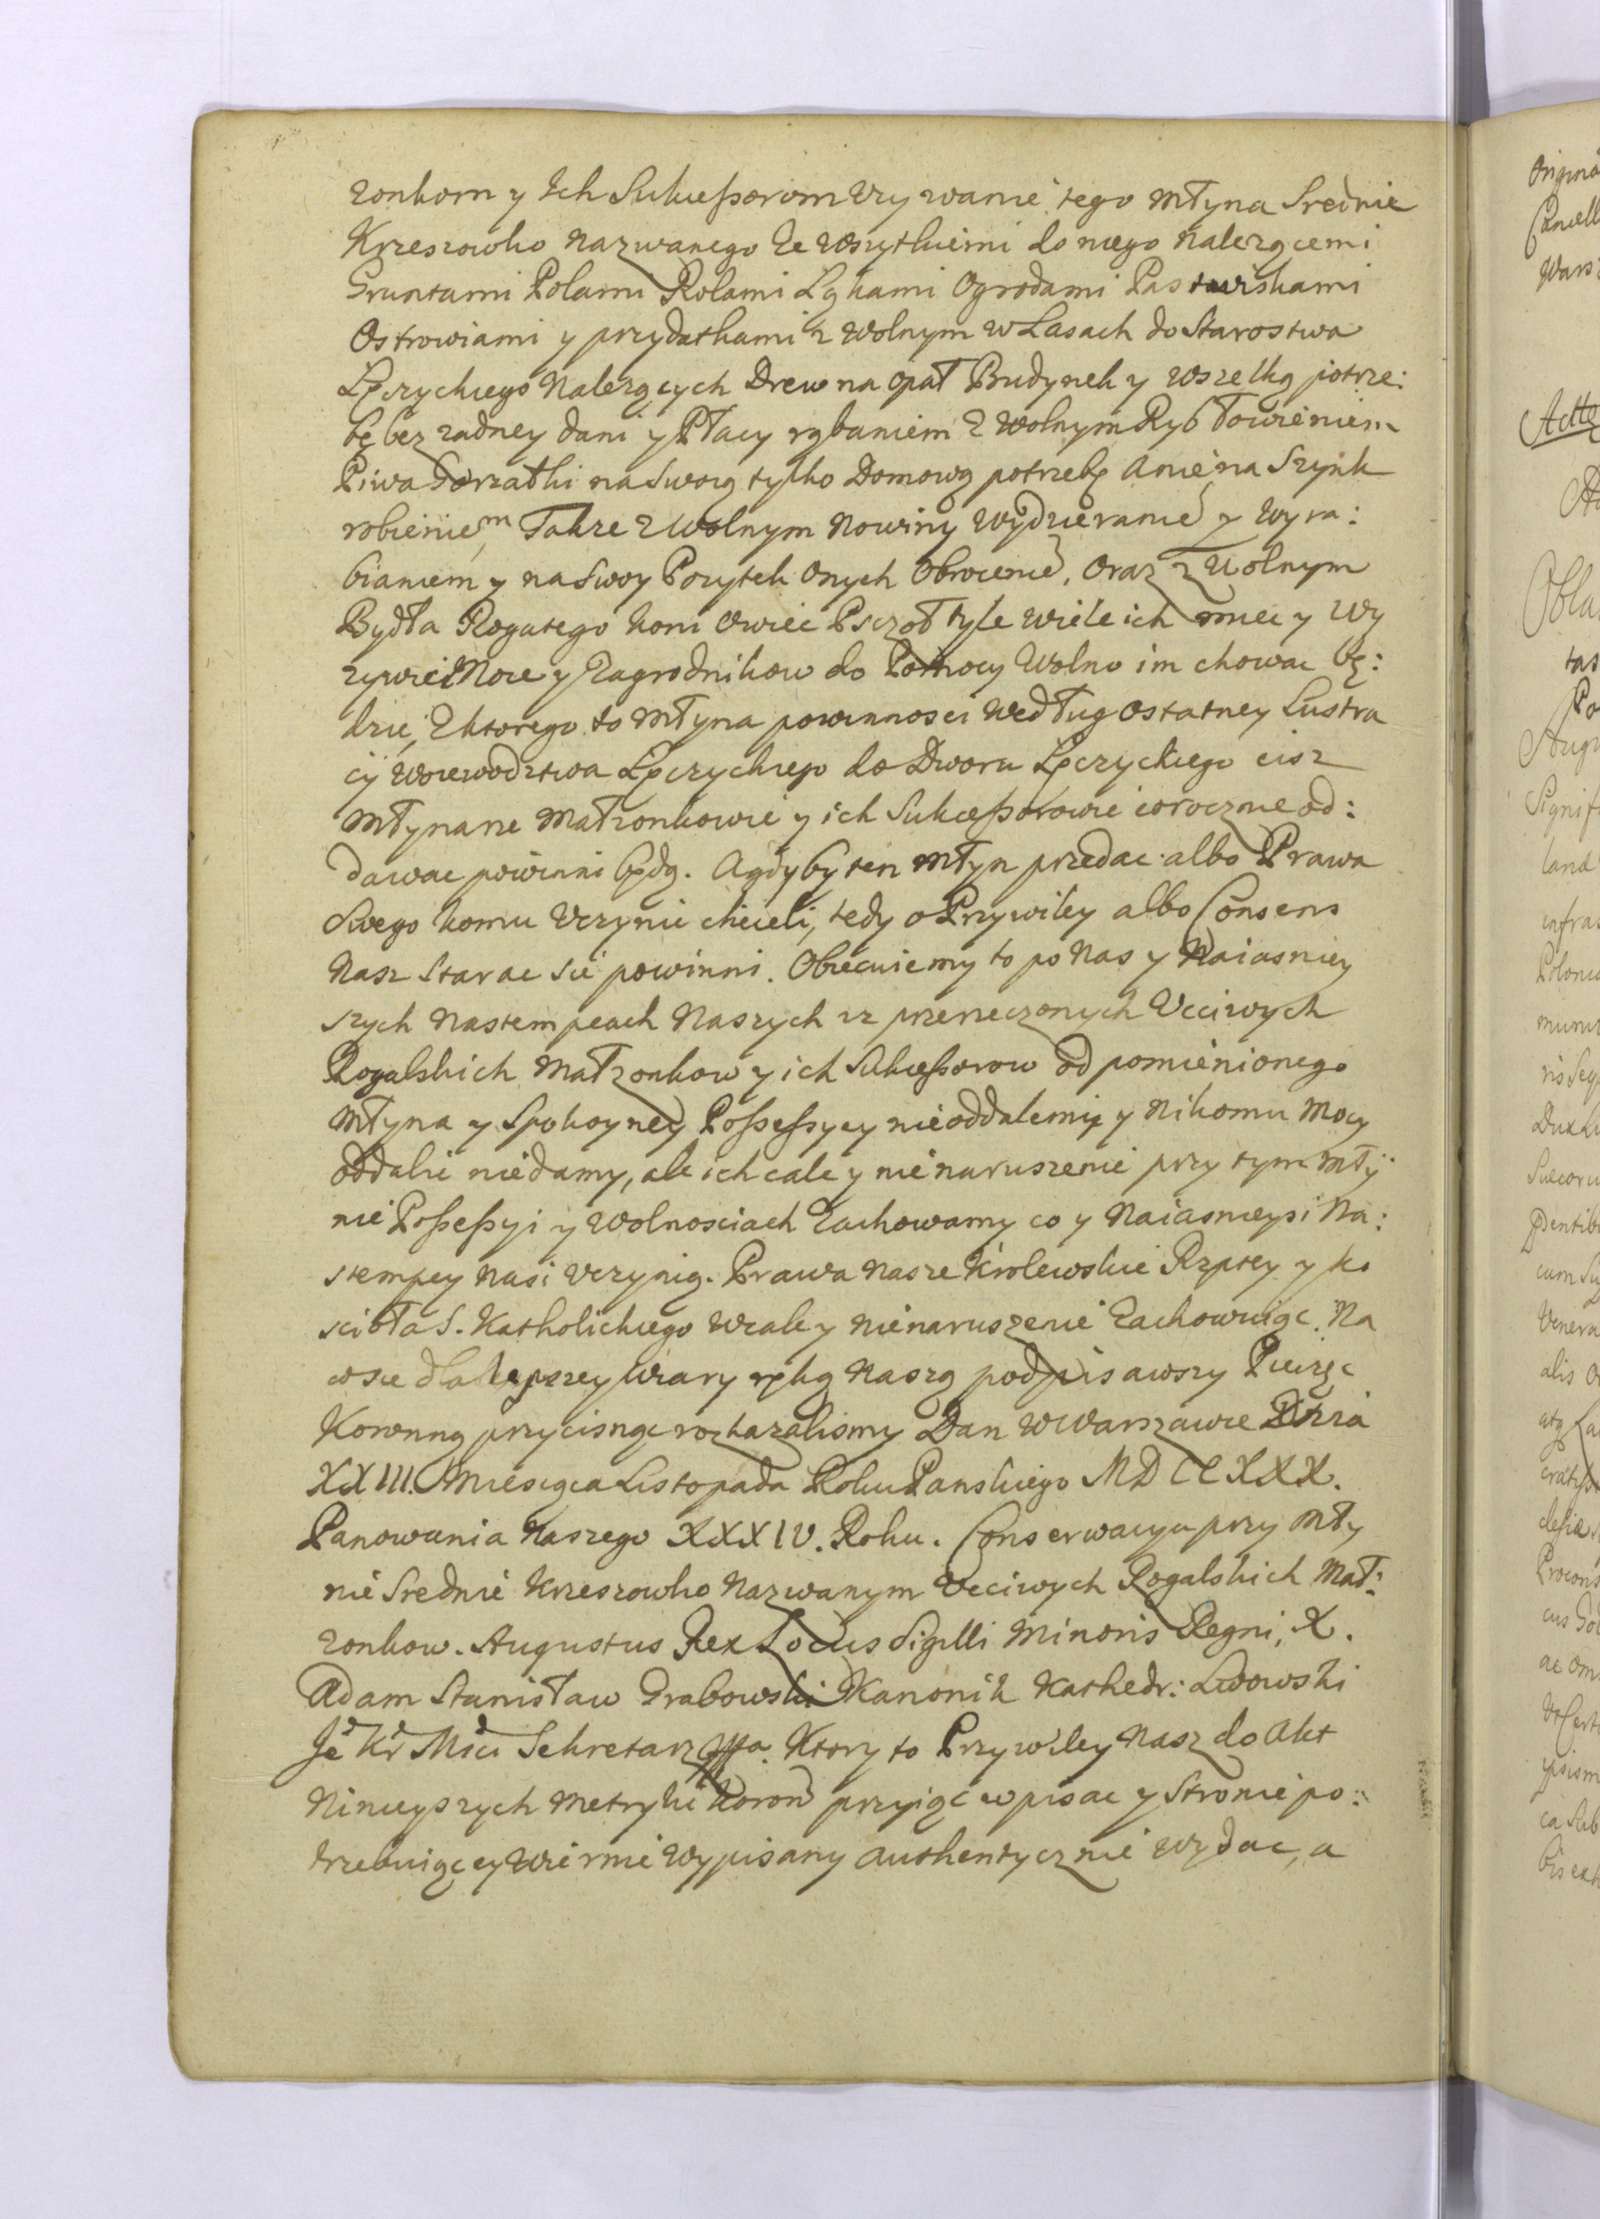 zonkom y Ich Sukceßorom Vzywanie tego Młyna Srednie
Krzeszowko Nazwanego Ze Wszytkiemi do niego Nalezącemi
Gruntami Polami Rolami Łąkami Ogrodami Pastwiskami
Ostrowiami y przydatkami z Wolnym w Lasach do Starostwa
Łęczyckiego Nalezących Drew na opał Budynek y wszelką potrze:
bę bez zadney dani y Płacy rąbaniem Z Wolnym Ryb łowieniem
Piwa Gorzałki na Swoię tylko Domową potrzebę a nie na Szynk
robieniem, Takze z Wolnym Nowiny Wydzieranie y Wyra:
bianiem y na Swoy Pozytek Onych Obrocenie, Oraz z Wolnym
Bydła Rogatego Koni Owiec Pszczoł tyle wiele ich miec y Wy
zywic Moze y Zagrodnikow do Pomocy Wolno im chowac bę:
dzie, Z ktorego to Młyna powinnosci Według ostatney Lustra
cÿ Woiewodztwa Łęczyckiego do Dworu Łęczyckiego cisz
Młynarze Małzonkowie y ich Sukceßorowie corocznie od:
dawac powinni będą. A gdyby ten Młyn przedac albo Prawa
Swego komu Vczynic chcieli, tedy o Przywiley albo Consens
Nasz Starac sie powinni. Obiecuiemy to po Nas y Naiasniey
szych Nastempcach Naszych iz przerzeczonych Vcciwych
Rogalskich Małzonkow y ich Sukceßorow od pomienionego
Młyna y Spokoyney Poßeßyey nieoddalemy y Nikomu Mocy
oddalic niedamy, ale ich cale y nienaruszenie przy tym Młÿ
nie Poßeßyi y Wolnosciach Zachowamy co y Naiasnieysi Na:
stempcy Nasi Vczynią. Prawa Nasze Krolewskie Rzptey y Ko
scioła S. Katholickiego Wcale y Nienaruszenie Zachowuiąc. Na
co sie dla lepszey Wiary ręką Naszą podpisawszy Pieczęc
Koronną przycisnąc rozkazalismy Dan w Warszawie Dnia
XXIII. Miesiąca Listopada Roku Panskiego MDCCXXX.
Panowania Naszego XXXIV. Roku. Conserwacya przy Mły
nie Srednie Krzeszowko Nazwanym Vcciwych Rogalskich Mał:
zonkow. Augustus Rex Locus Sigilli Minoris Regni, X.
Adam Stanisław Grabowski Kanonik Kathedr: Lwowski
Je Kr Mci Sekretarz mpa. Ktory to Przywiley Nasz do Akt
Ninieyszych Metryki Koron przyiąc wpisac y Stronie po:
trzebuiącey Wiernie Wypisany authentycznie Wydac, a